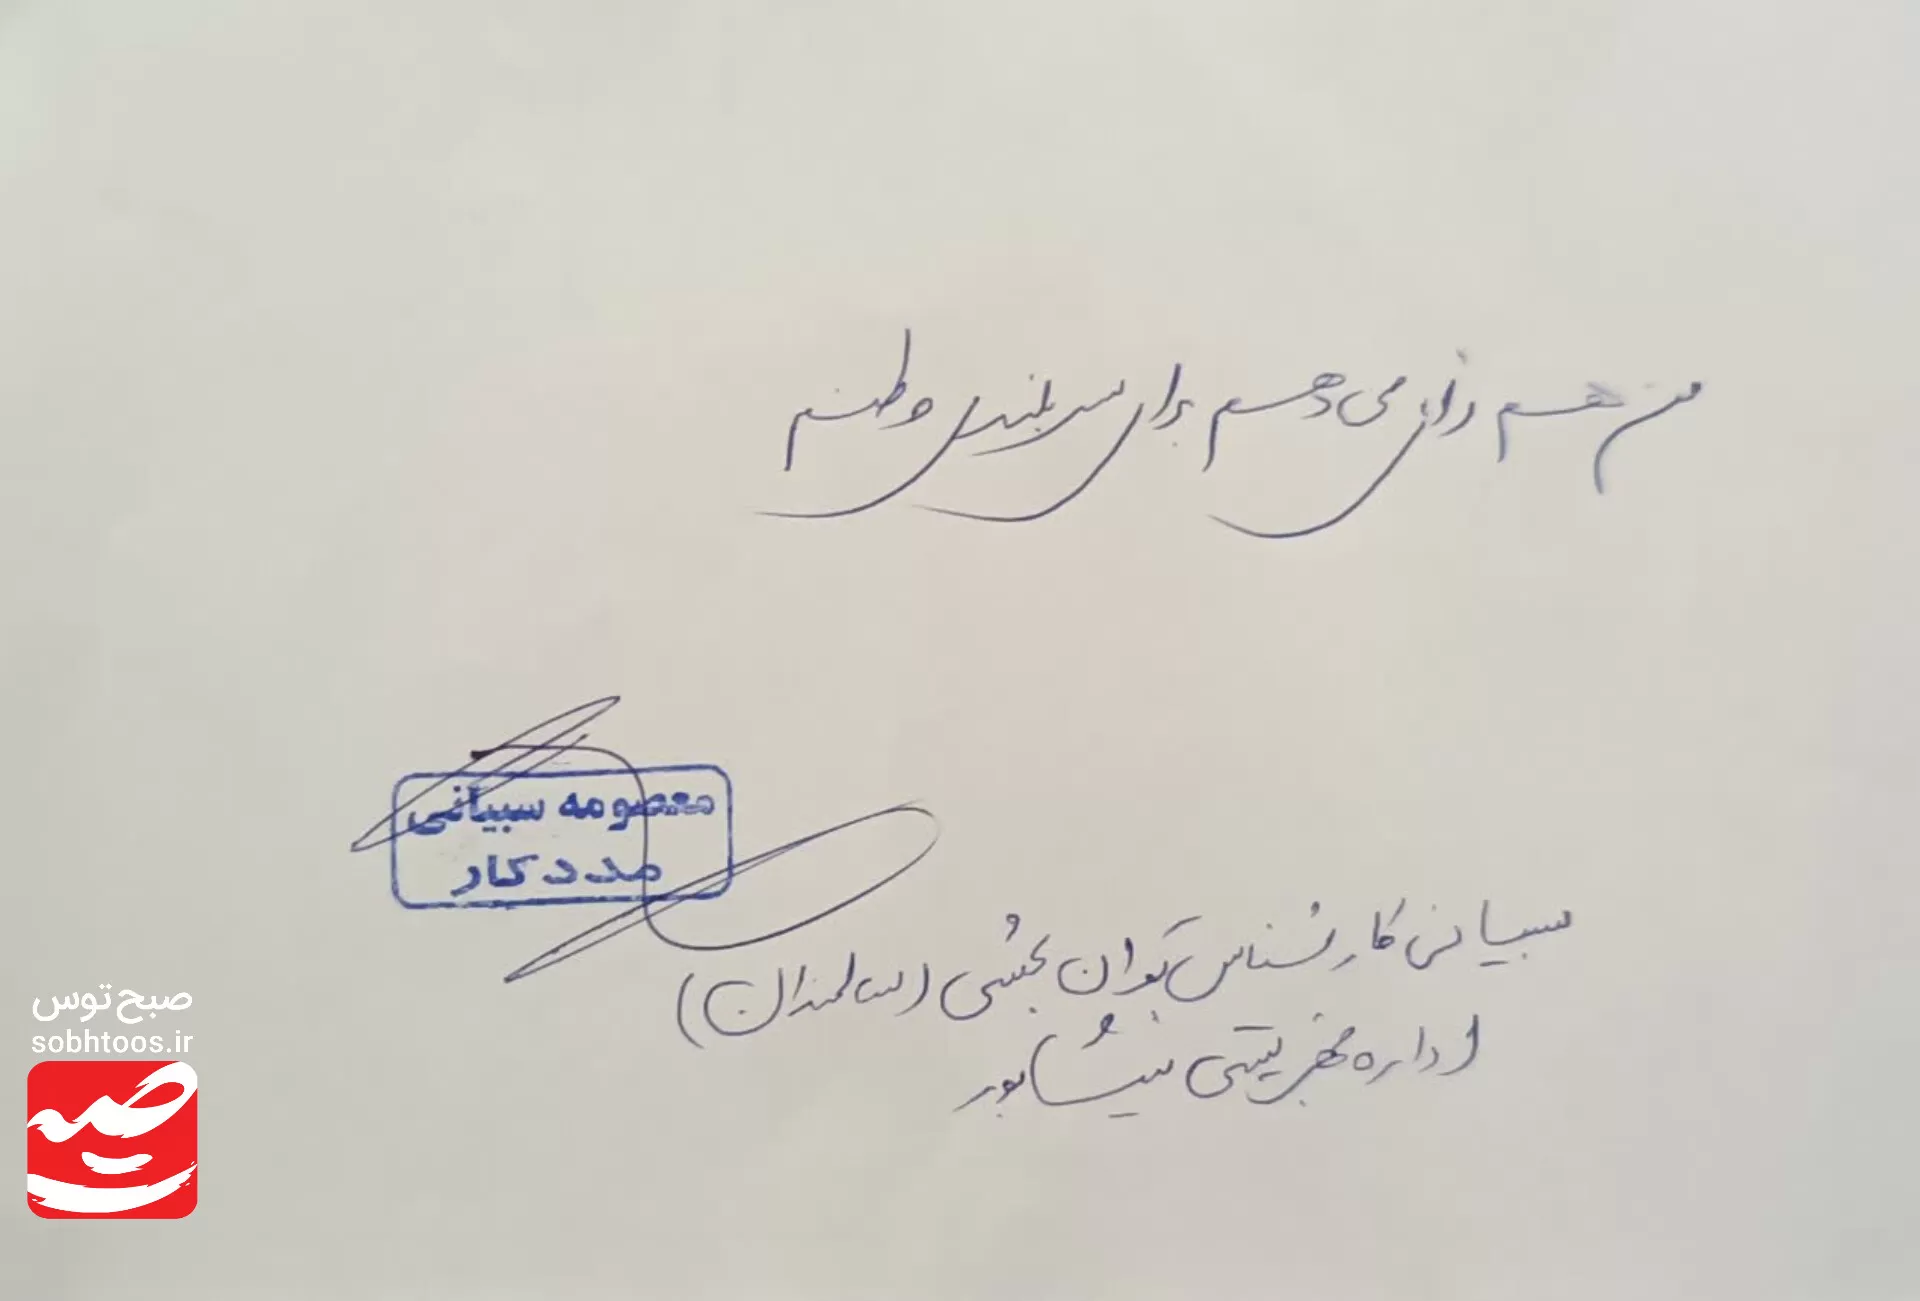 من هم رأی می دهم برای سربلندی وطنم
معصومه سبیانی
مددکار
سبیانی کارشناس توان بخشی (سالمندان)
اداره بهزیستی نیشابور
صبح توس
sobhtoos.ir